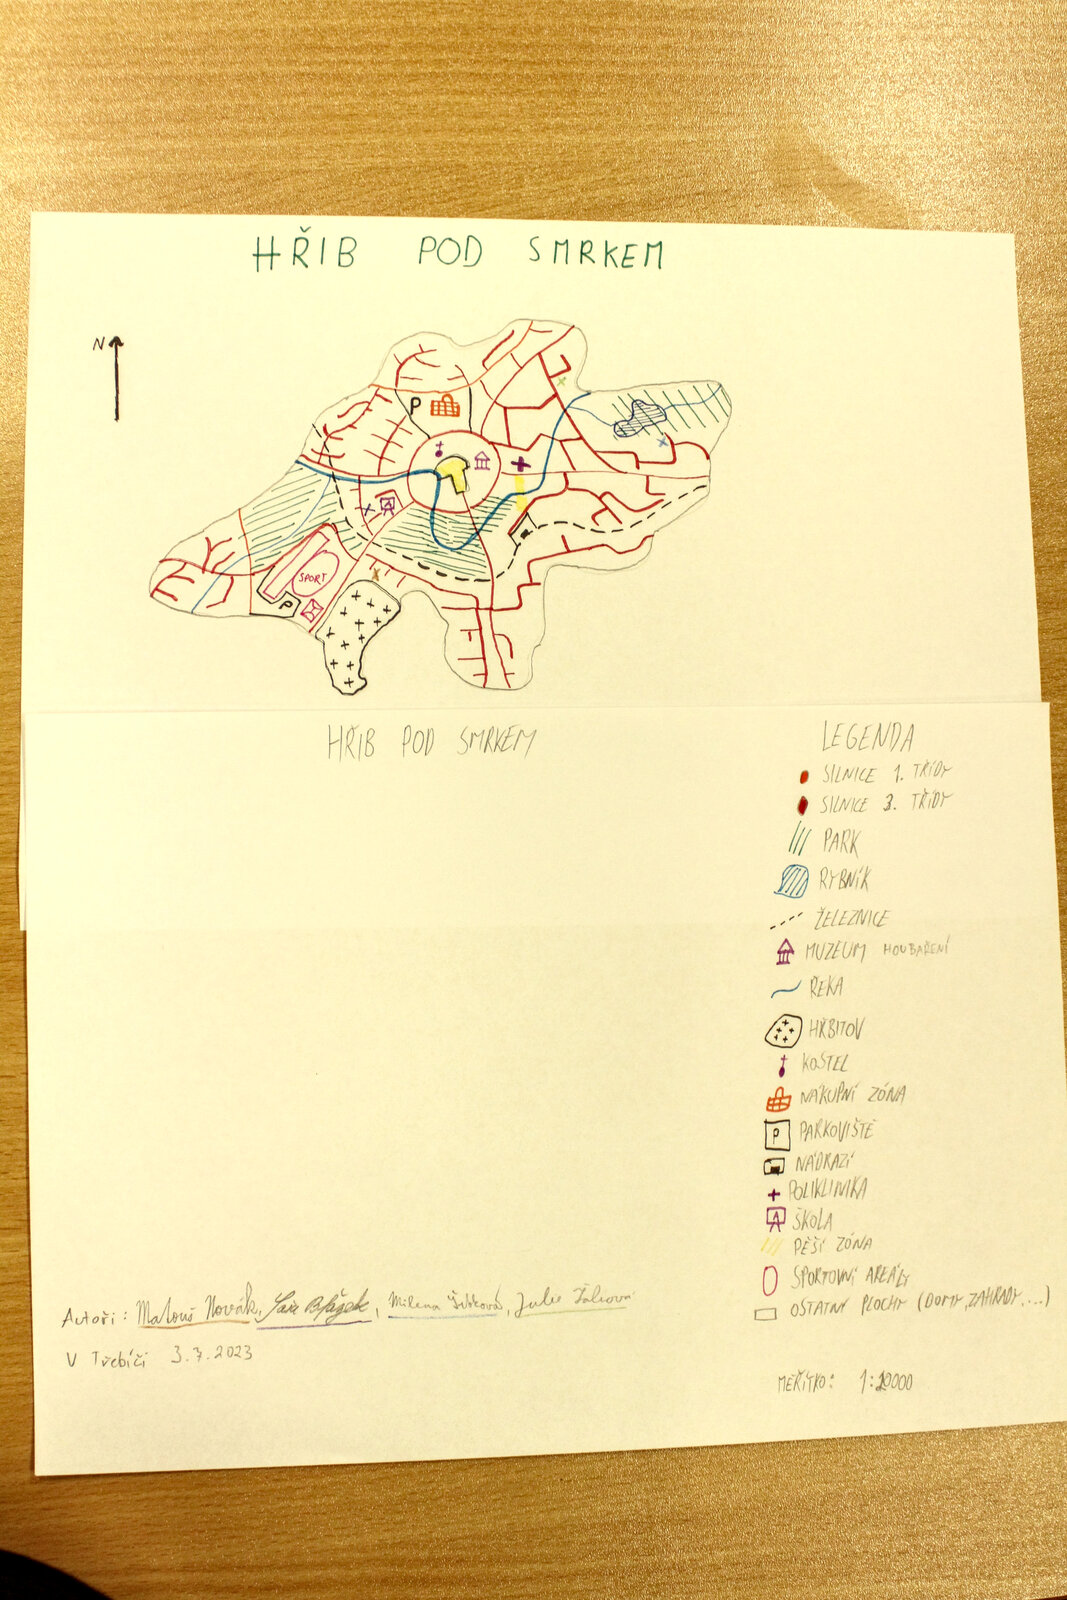 HŘIB POD SMRKEM
N
P
A
SPORT
P
HŘIB POD SMRKEM
LEGENDA
SILNICE 1. TŘÍDY
SILNICE 3. TŘÍDY
PARK
RYBNÍK
ŽELEZNICE
MUZEUM HOUBAŘENÍ
ŘEKA
HŘBITOV
KOSTEL
NÁKUPNÍ ZÓNA
P PARKOVIŠTĚ
NÁDRAŽÍ
POLIKLINIKA
A ŠKOLA
PĚŠÍ ZÓNA
SPORTOVNÍ AREÁLY
OSTATNÍ PLOCHY (DOMY, ZAHRADY, ...)
Autoři: Matouš Novák, Blažek, Milena, Julie
V Třebíči 3.7.2023
MĚŘÍTKO: 1:20000